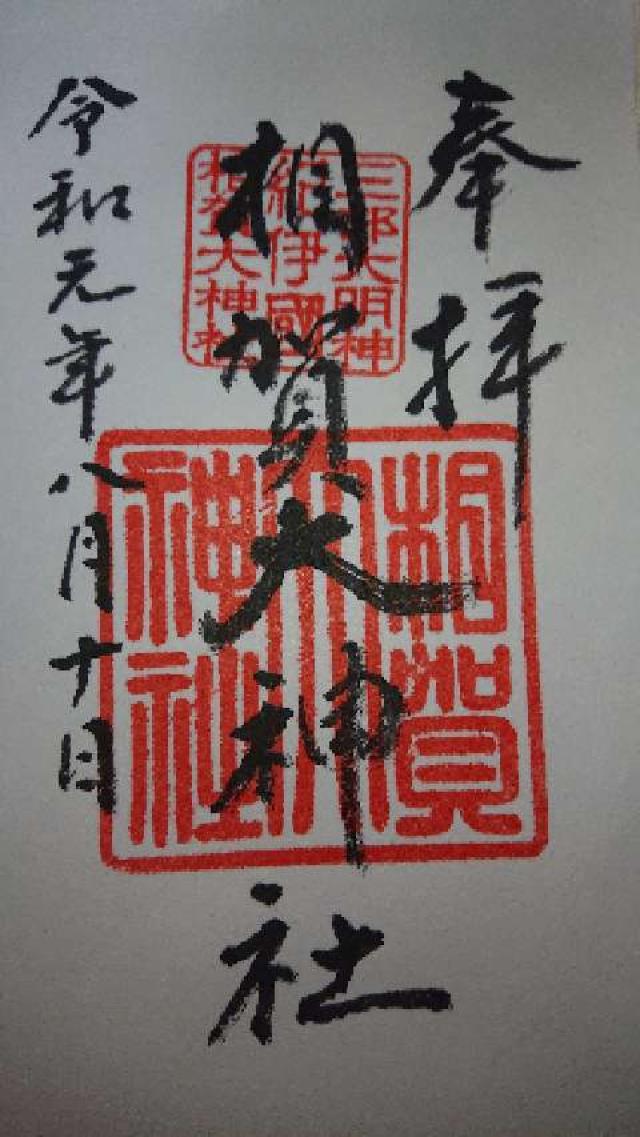 奉拝
三郷大明神
紀伊國
相賀大神社
相賀大神社
相賀大神社
令和元年八月十日